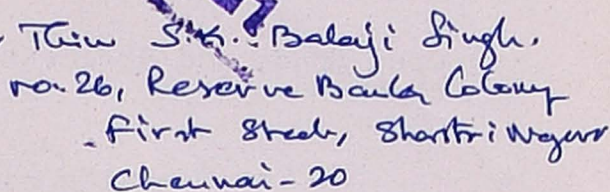 Thiru S.K. Balaji Singh.
no. 26, Reserve Bank Colony
First Street, Shastri Nagar
Chennai - 20